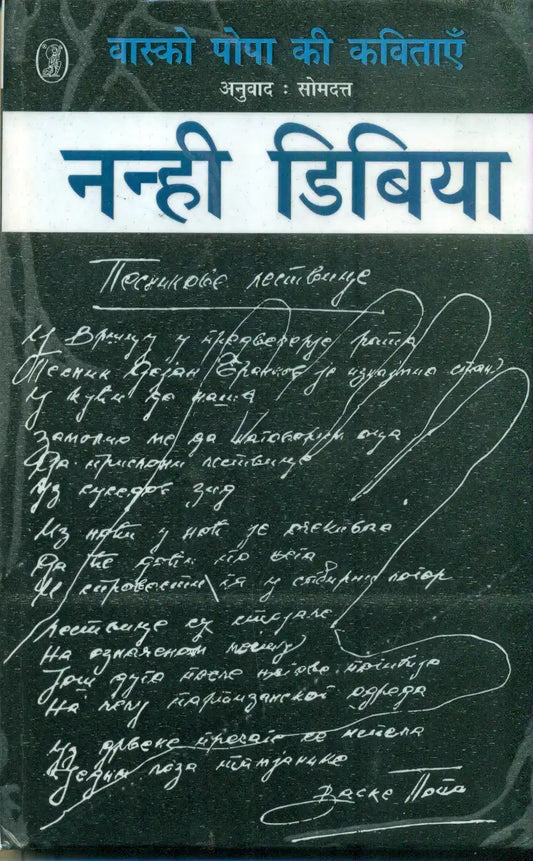 वास्को पोपा की कविताएँ
अनुवाद : सोमदत्त
नन्ही डिबिया
Песникове лествице
У Вршцу у предвечерје рата
Песник Дејан Бранков је изнајмио стан
У кући до наше
Замолио ме да наговорим оца
Да прислони лествице
Уз суседов зид
Из ноћи у ноћ је очекивао
Да ће доћи по њега
И спровести га у сабирни логор
Лествице су стајале
На означеном месту
Још дуго после његове погибије
На челу партизанског одреда
Уз дрвене пречаге се
лоза
Васко Попа